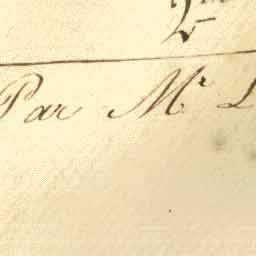 Par Mr L